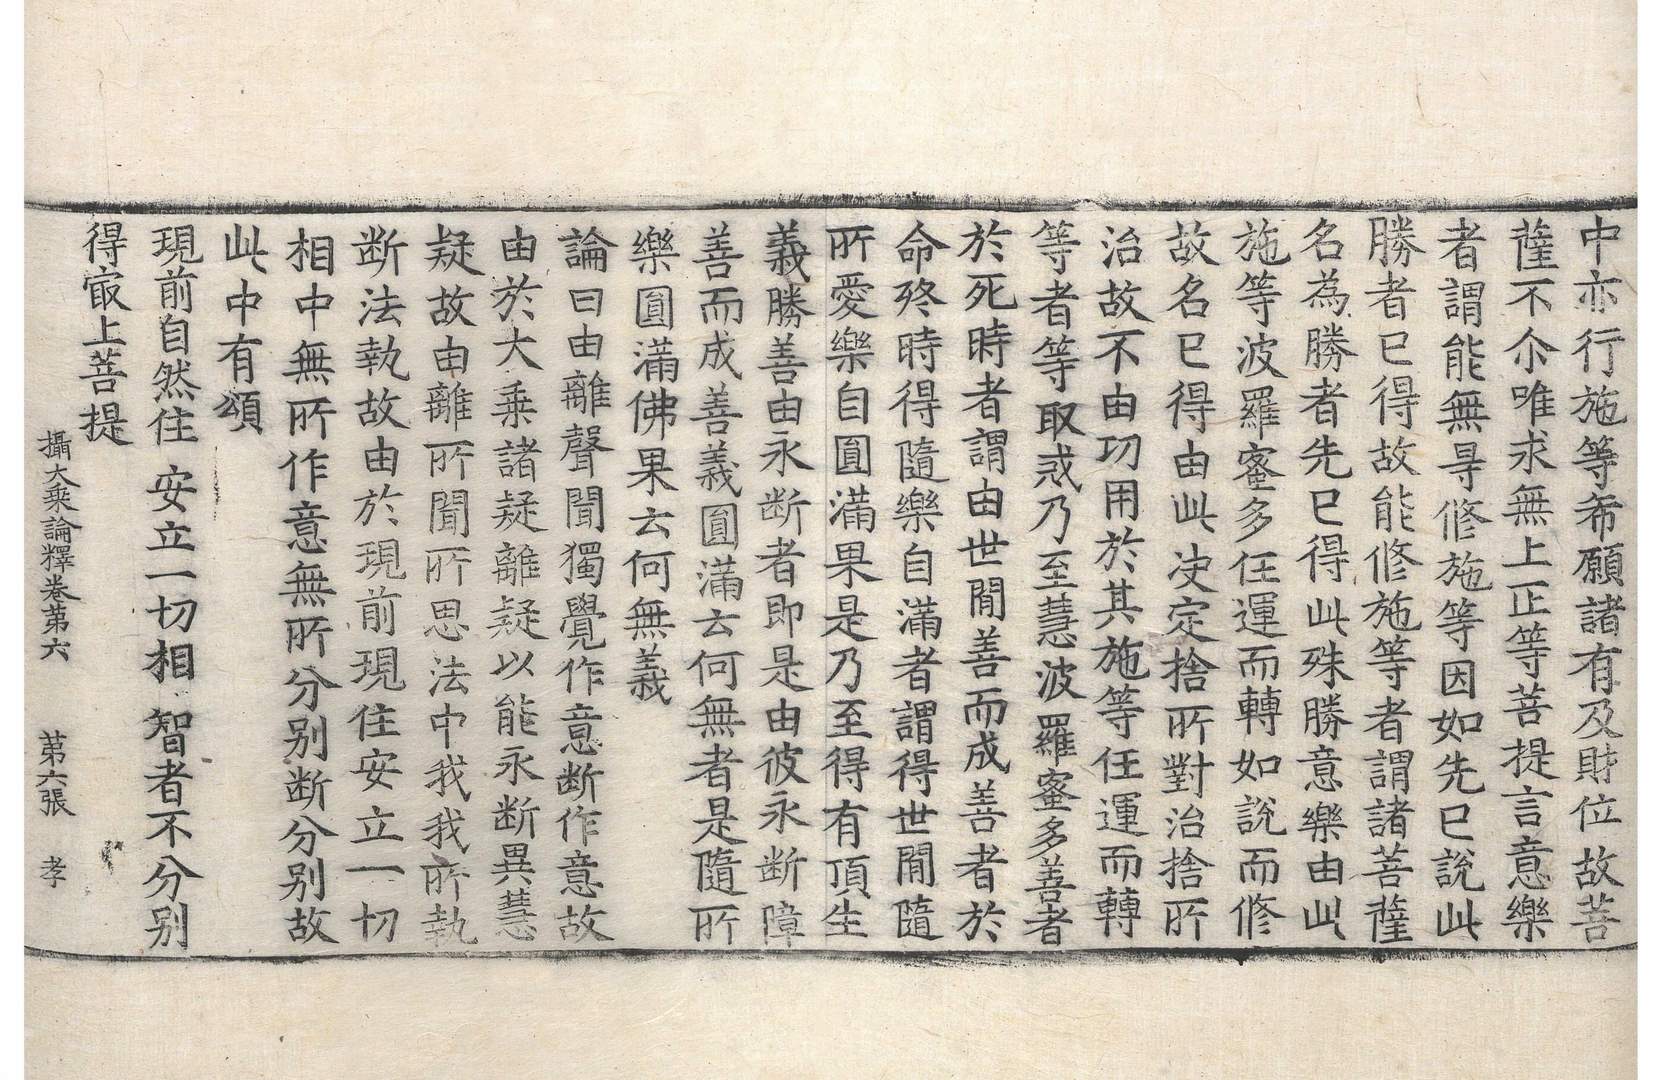 中亦行施等希願諸有及財位故菩
薩不尒唯求無上正等菩提言意樂
者謂能無㝵修施等因如先已說此
勝者已得故能修施等者謂諸菩薩
名為勝者先已得此殊勝意樂由此
施等波羅蜜多任運而轉如說而修
故名已得由此决定捨所對治捨所
治故不由功用於其施等任運而轉
等者等取惑乃至慧波羅蜜多善者
於死時者謂由世閒善而成善者於
命終時得隨樂自滿者謂得世閒隨
所愛樂自圓滿果是乃至得有頂生
義勝善由永断者即是由彼永断障
善而成善義圓滿云何無者是隨所
樂圓滿佛果云何無義
論曰由離聲聞獨覺作意断作意故
由於大乘諸疑離疑以能永断異慧
疑故由離所聞所思法中我我所執
断法執故由於現前現住安立一切
相中無所作意無所分别断分别故
此中有頌
現前自然住 安立一切相 智者不分别
得㝡上菩提
攝大乘論釋卷第六 第六張 孝